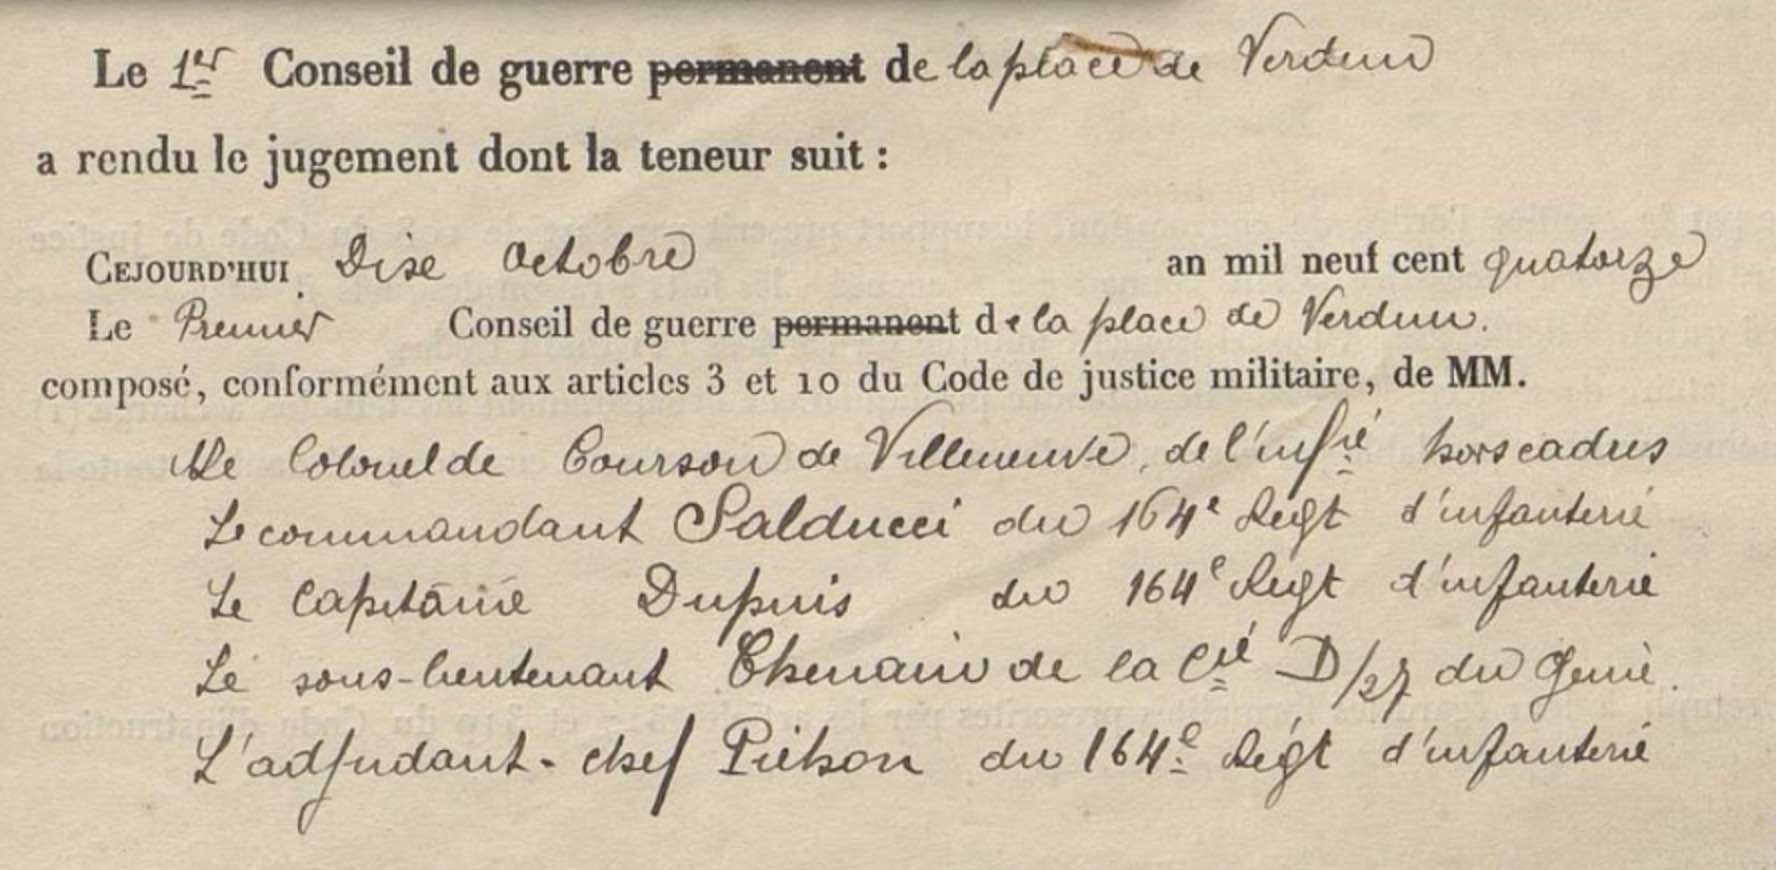 Le 1er Conseil de guerre permanent de la place de Verdun
a rendu le jugement dont la teneur suit :
CEJOURD'HUI Dixe Octobre an mil neuf cent quatorze
Le Premier Conseil de guerre permanent de la place de Verdun.
composé, conformément aux articles 3 et 10 du Code de justice militaire, de MM.
Le Colonel de Courson de Villeneuve, de l'infie hors cadres
Le commandant Salducci du 164e Régt d'infanterie
Le Capitaine Dupuis du 164e Régt d'infanterie
Le sous-lieutenant Thenain de la Cie D/27 du Génie.
L'adjudant-chef du 164e Régt d'infanterie